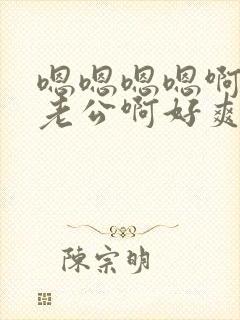 嗯嗯嗯嗯啊
老公啊好爽
陳宗明